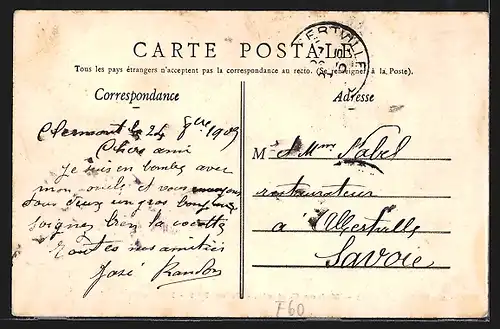 CARTE POSTALE
Tous les pays étrangers n'acceptent pas la correspondance au recto. (Se renseigner à la Poste).
Correspondance
Clermont le 24 8bre 1909
Chers ami
Je suis en bombe avec
mon oncle et vous envoyons
tous deux un gros
soignez bien la cocotte
Toutes nos amitiés
José Randon
Adresse
M et Mme Label
restaurateur
à Albertville
Savoie
F60